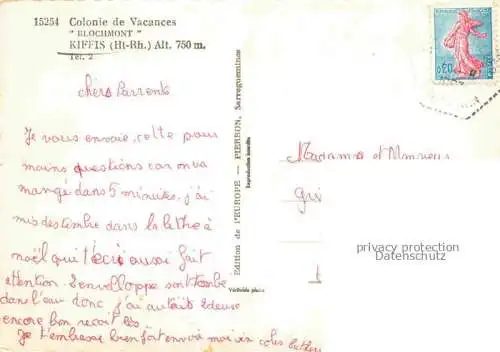 15254 Colonie de Vacances
" BLOCHMONT "
KIFFIS (Ht-Rh.) Alt. 750 m.
Tél. 2
chers Parrents
Je vous envoie, cette pour
moins questions car on va
mangé dans 5 minutes, j'ai
mis des timbre dans la lethe à
noël qui t'écri aussi fait
attention. 2 enveloppe sont tombe
dans l'eau donc j'ai autait 2 deuse
encore bon recoit les
Je t'embrasse bien fort envoi moi
Edition de l'EUROPE — PIERRON, Sarreguemines
Reproduction interdite
Véritable photo
Madame et Monsieur
Gri
privacy protection
Datenschutz
0,20